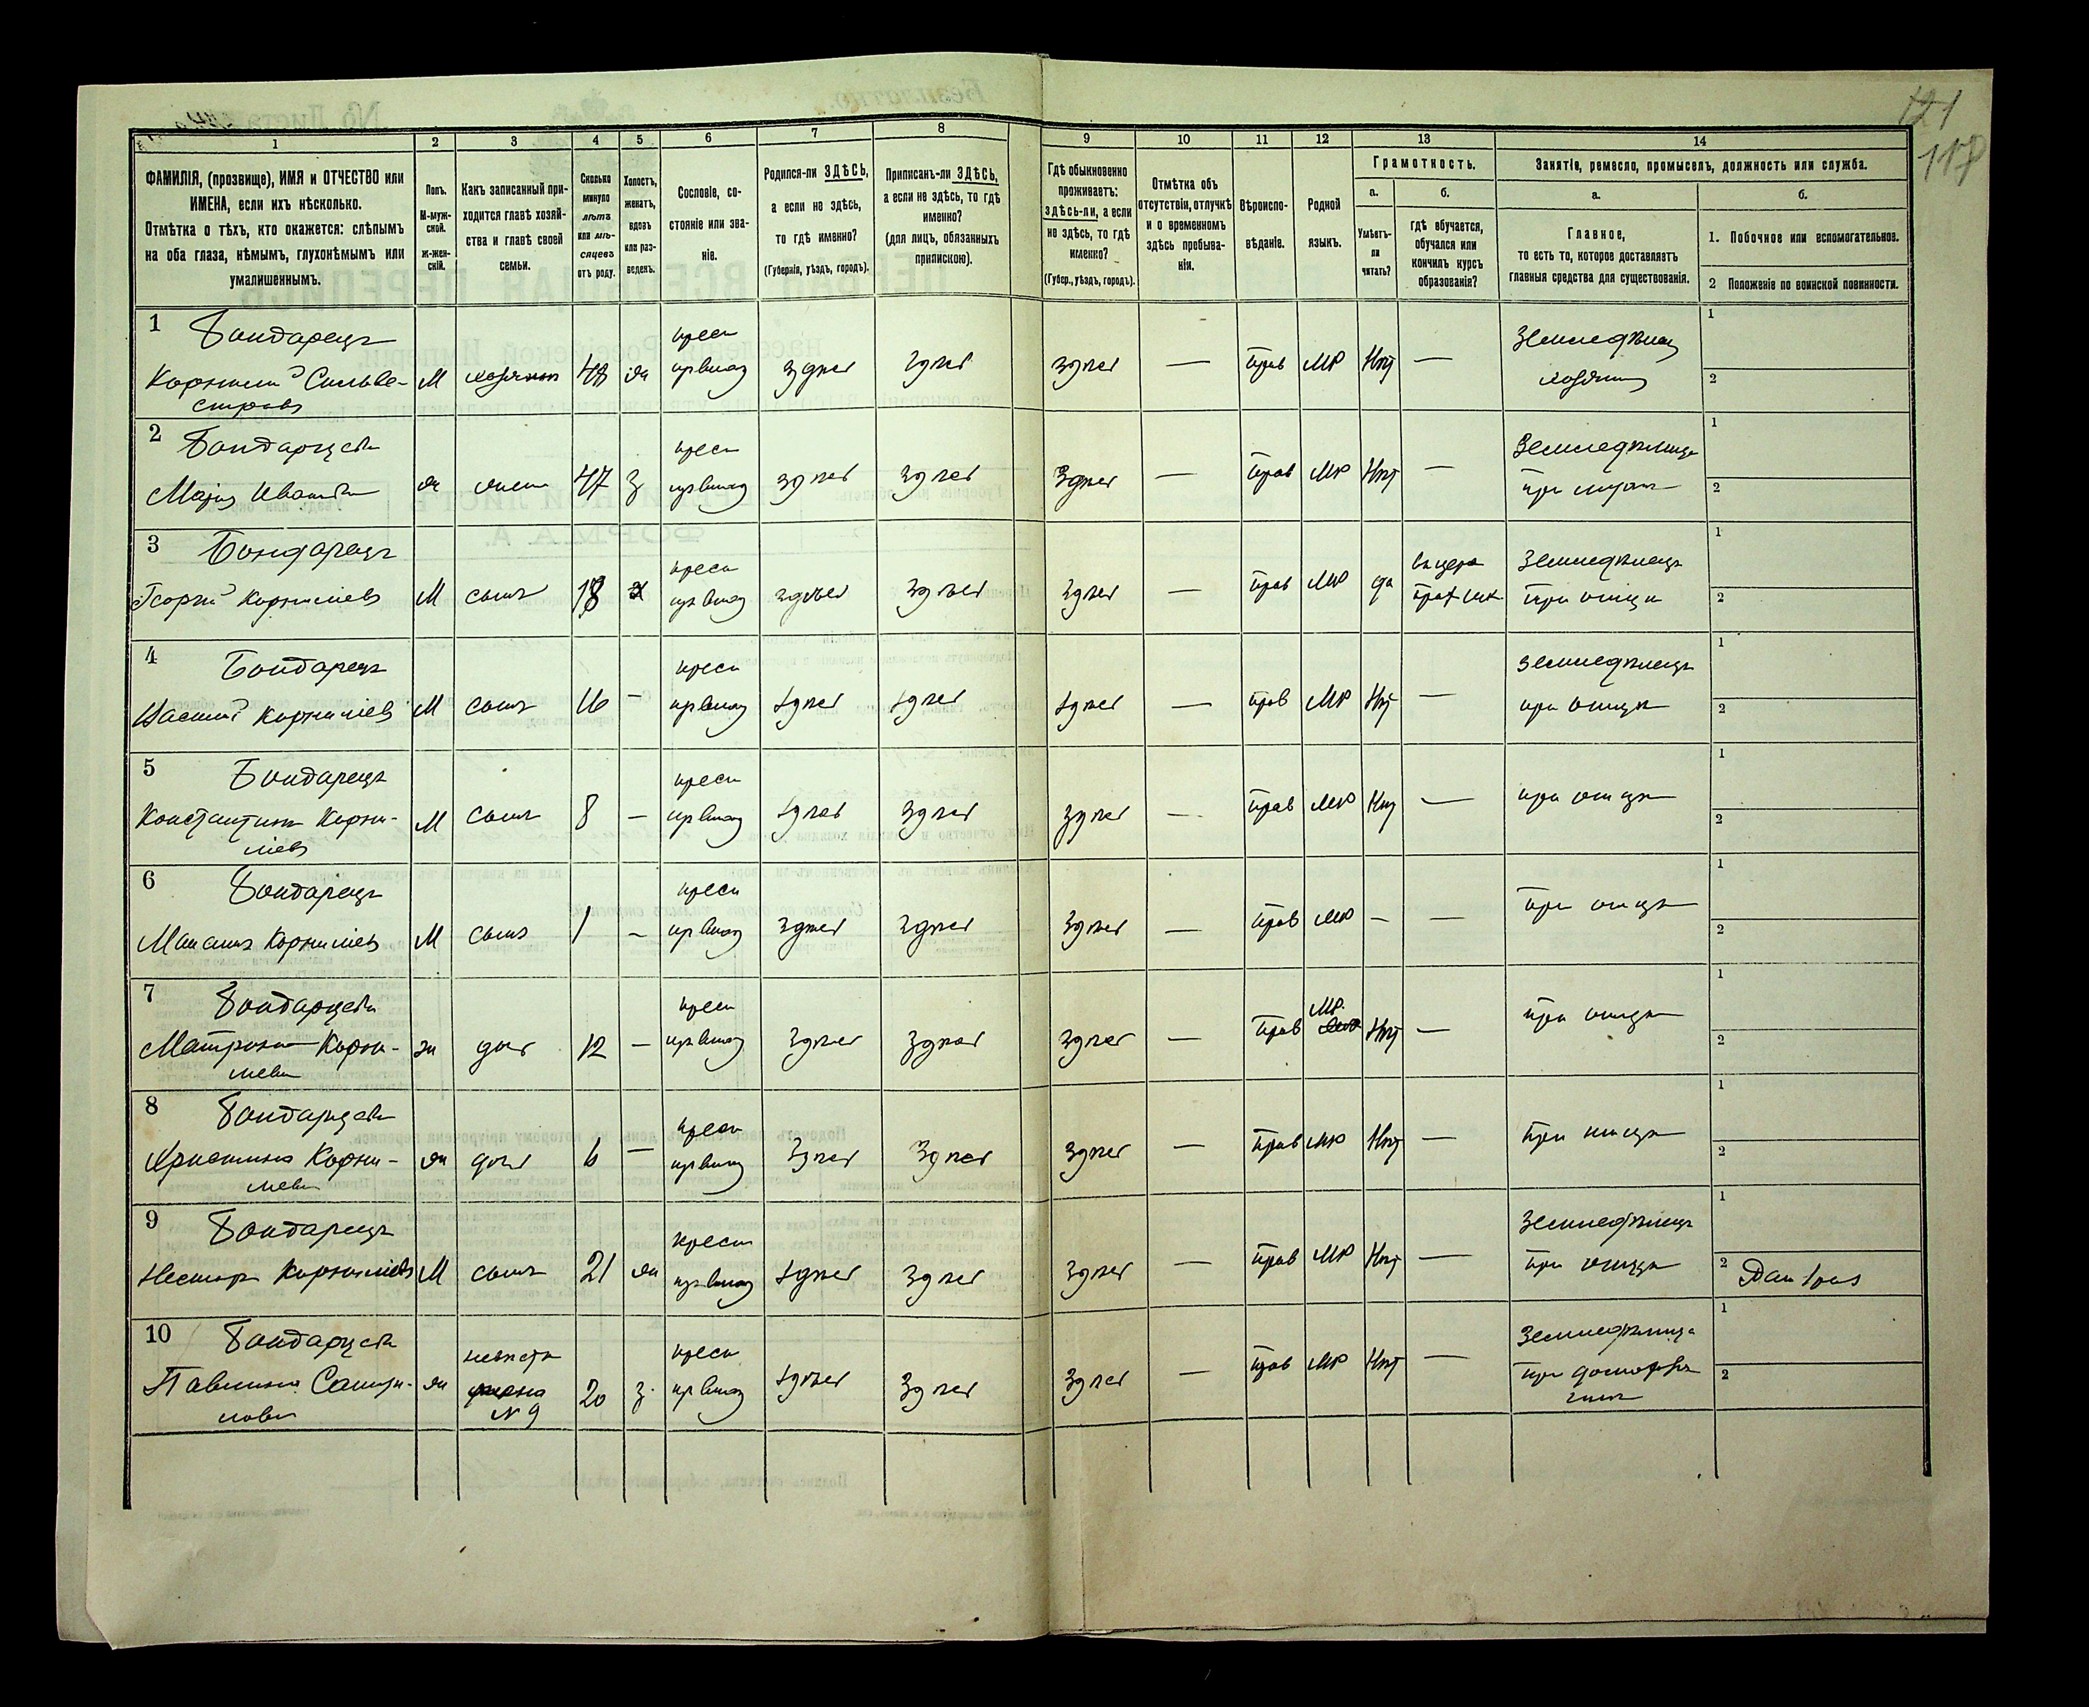 121
117
1 2 3 4 5 6 7 8 9 10 11 12 13 14
ФАМИЛІЯ, (прозвище), ИМЯ и ОТЧЕСТВО или ИМЕНА, если ихъ нѣсколько.
Отмѣтка о тѣхъ, кто окажется: слѣпымъ на оба глаза, нѣмымъ, глухонѣмымъ или умалишеннымъ.
Полъ.
М-мужской.
ж-женскій.
Какъ записанный приходится главѣ хозяйства и главѣ своей семьи.
Сколько минуло лѣтъ или мѣсяцевъ отъ роду.
Холостъ, женатъ, вдовъ или разведенъ.
Сословіе, состояніе или званіе.
Родился-ли ЗДѢСЬ, а если не здѣсь, то гдѣ именно?
(Губернія, уѣздъ, городъ).
Приписанъ-ли ЗДѢСЬ, а если не здѣсь, то гдѣ именно?
(для лицъ, обязанныхъ припискою).
Гдѣ обыкновенно проживаетъ: здѣсь-ли, а если не здѣсь, то гдѣ именно?
(Губер., уѣздъ, городъ).
Отмѣтка объ отсутствіи, отлучкѣ и о временномъ здѣсь пребываніи.
Вѣроисповѣданіе.
Родной языкъ.
Грамотность.
а.
Умѣетъ-ли читать?
б.
гдѣ обучается, обучался или кончилъ курсъ образованія?
Занятія, ремесло, промыселъ, должность или служба.
а.
Главное,
то есть то, которое доставляетъ главныя средства для существованія.
б.
1. Побочное или вспомогательное.
2 Положеніе по воинской повинности.
1 Бондарецъ
Корнилій Сильвестровъ М хозяинъ 48 ж крест здѣсь здѣсь здѣсь — прав МР Нѣт — Земледѣлец хозяинъ
2 Бондарцева
Марія Иванова ж жена 47 з крест здѣсь здѣсь здѣсь — прав МР Нѣт — Земледѣлица при мужѣ
3 Бондарецъ
Георгій Корниліевъ М сынъ 18 х крест здѣсь здѣсь здѣсь — прав МР да Земледѣлецъ при отцѣ
4 Бондарецъ
Василій Корниліевъ М сынъ 16 - крест здѣсь здѣсь здѣсь — прав МР Нѣт — земледѣлецъ при отцѣ
5 Бондарецъ
Константинъ Корниліевъ М сынъ 8 — крест здѣсь здѣсь здѣсь — прав МР Нѣт — при отцѣ
6 Бондарецъ
Корниліевъ М сынъ 1 - крест здѣсь здѣсь здѣсь — прав МР - — при отцѣ
7 Бондарцева
Матрона Корнилиева ж доч 12 — крест здѣсь здѣсь здѣсь — прав МР. Нѣт — при отцѣ
8 Бондарцева
Христина Корнилиева ж доч 6 — крест здѣсь здѣсь здѣсь — прав МР Нѣт — при отцѣ
9 Бондарецъ
Несторъ Корниліевъ М сынъ 21 ж крест здѣсь здѣсь здѣсь — прав МР Нѣт — Земледѣлецъ при отцѣ
10 Бондарцева
Павлина ж невѣста №9 20 з. крест здѣсь здѣсь здѣсь — прав МР Нѣт — Земледѣлица